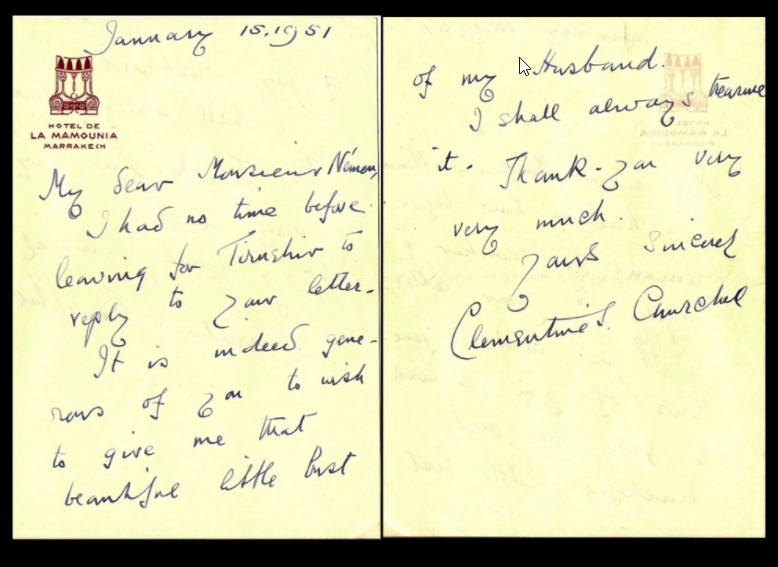 January 15.1951
HOTEL DE
LA MAMOUNIA
MARRAKECH
My dear Monsieur Némon,
I had no time before
leaving for Tinerhir to
reply to your letter.
It is indeed gene-
rous of you to wish
to give me that
beautiful little bust
of my Husband.
I shall always treasure
it. Thank-you very
very much.
Yours sincerely
Clementine S. Churchill